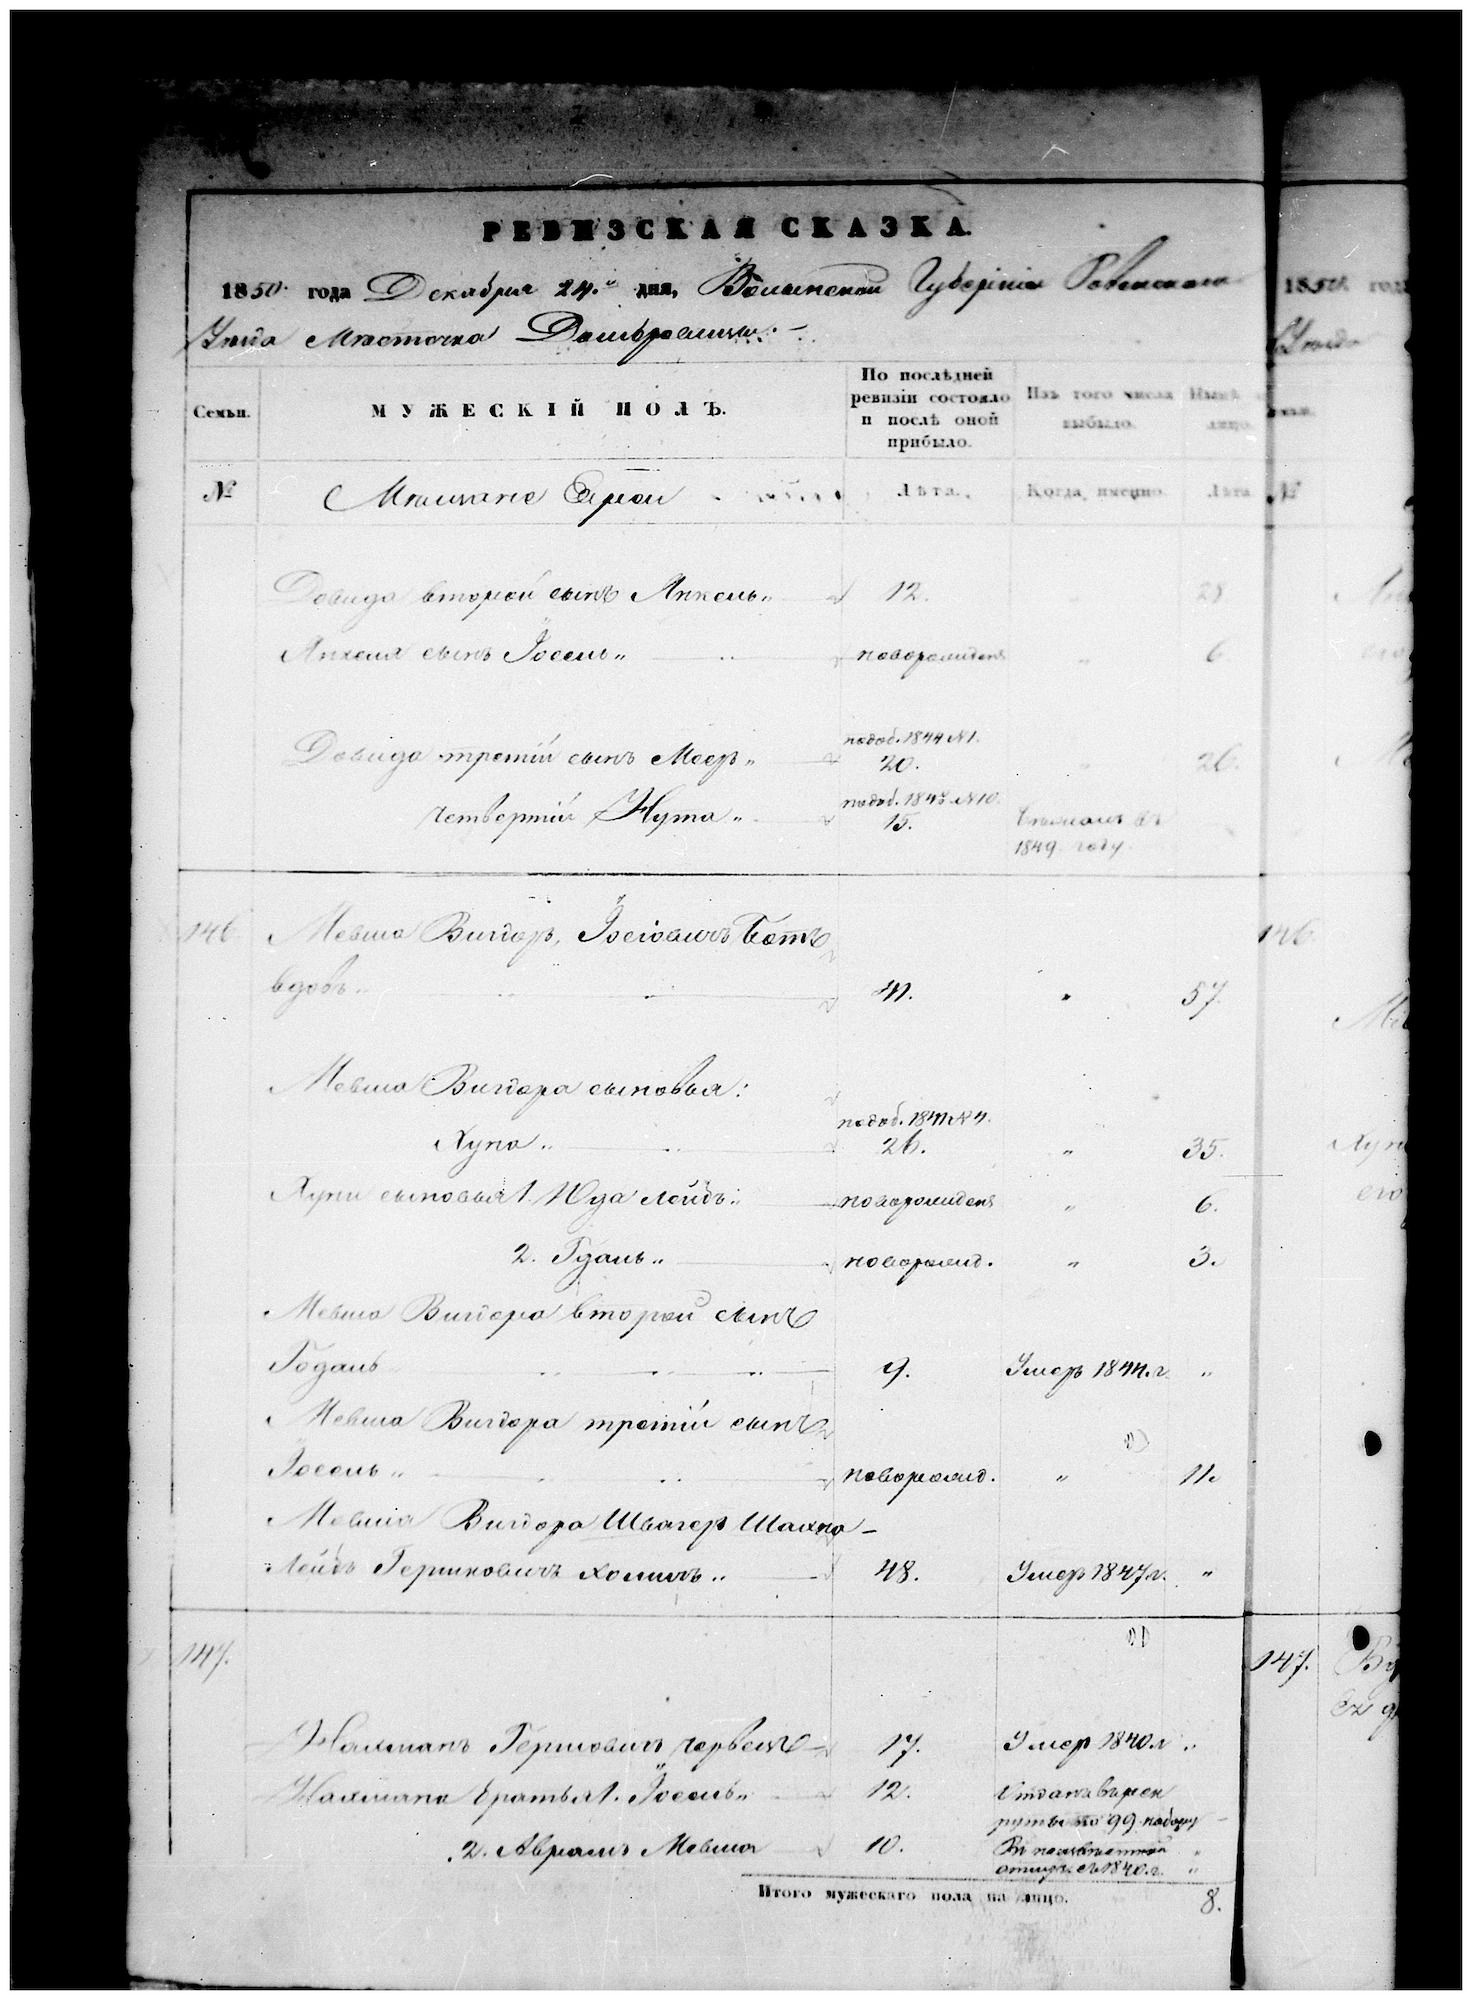 РЕВИЗСКАЯ СКАЗКА.
1850 года Декабря 24.го дня, Волынской Губерніи Ровенского
Уезда Местечка Домбровицы:
Семьи.
МУЖЕСКІЙ ПОЛЪ.
По послѣдней ревизіи состояло и послѣ оной прибыло.
Изъ того числа выбыло.
Нынѣ на лицо.
№
Мещане Евреи
Лѣта.
Когда, именно.
Лѣта
Довида второй сынъ Янкель„ 12. 28
Янкеля сынъ Іосель„ новорожденъ „ 6
подоб. 1844 №1.
Довида третій сынъ Меер„ 20. 26.
подоб. 1843 №10.
четвертій Нута„ 15.
1849 году
146 Мевша Вигдоръ, Іосіовичъ
вдовъ„ 41. „ 57.
Мевша Вигдора сыновья:
подоб. 1841 №4.
Хуна„ 26. „ 35.
Хуни сыновья 1. Юда Лейбъ„ новорожденъ „ 6.
2. Гдаль„ новорожд. „ 3.
Мевша Вигдора второй сынъ
Годаль 9. Умеръ 1844.г. „
Мевша Вигдора третій сынъ
Іосель„ новорожд. „ 11.
Мевша Вигдора Швагер Шахна-
Лейбъ Гершковичъ 48. Умеръ 1847г. „
147.
Нахманъ Гершовичъ 17. Умер 1840.г „
Нахмана братья 1. Іосель„ 12. Отданъ въ рек
руты по 99 набору
2. Авраамъ Мевша 10. „
съ 1840.г. „
Итого мужескаго пола на лицо. 8.
1850 год
Уезда
№
146.
147.